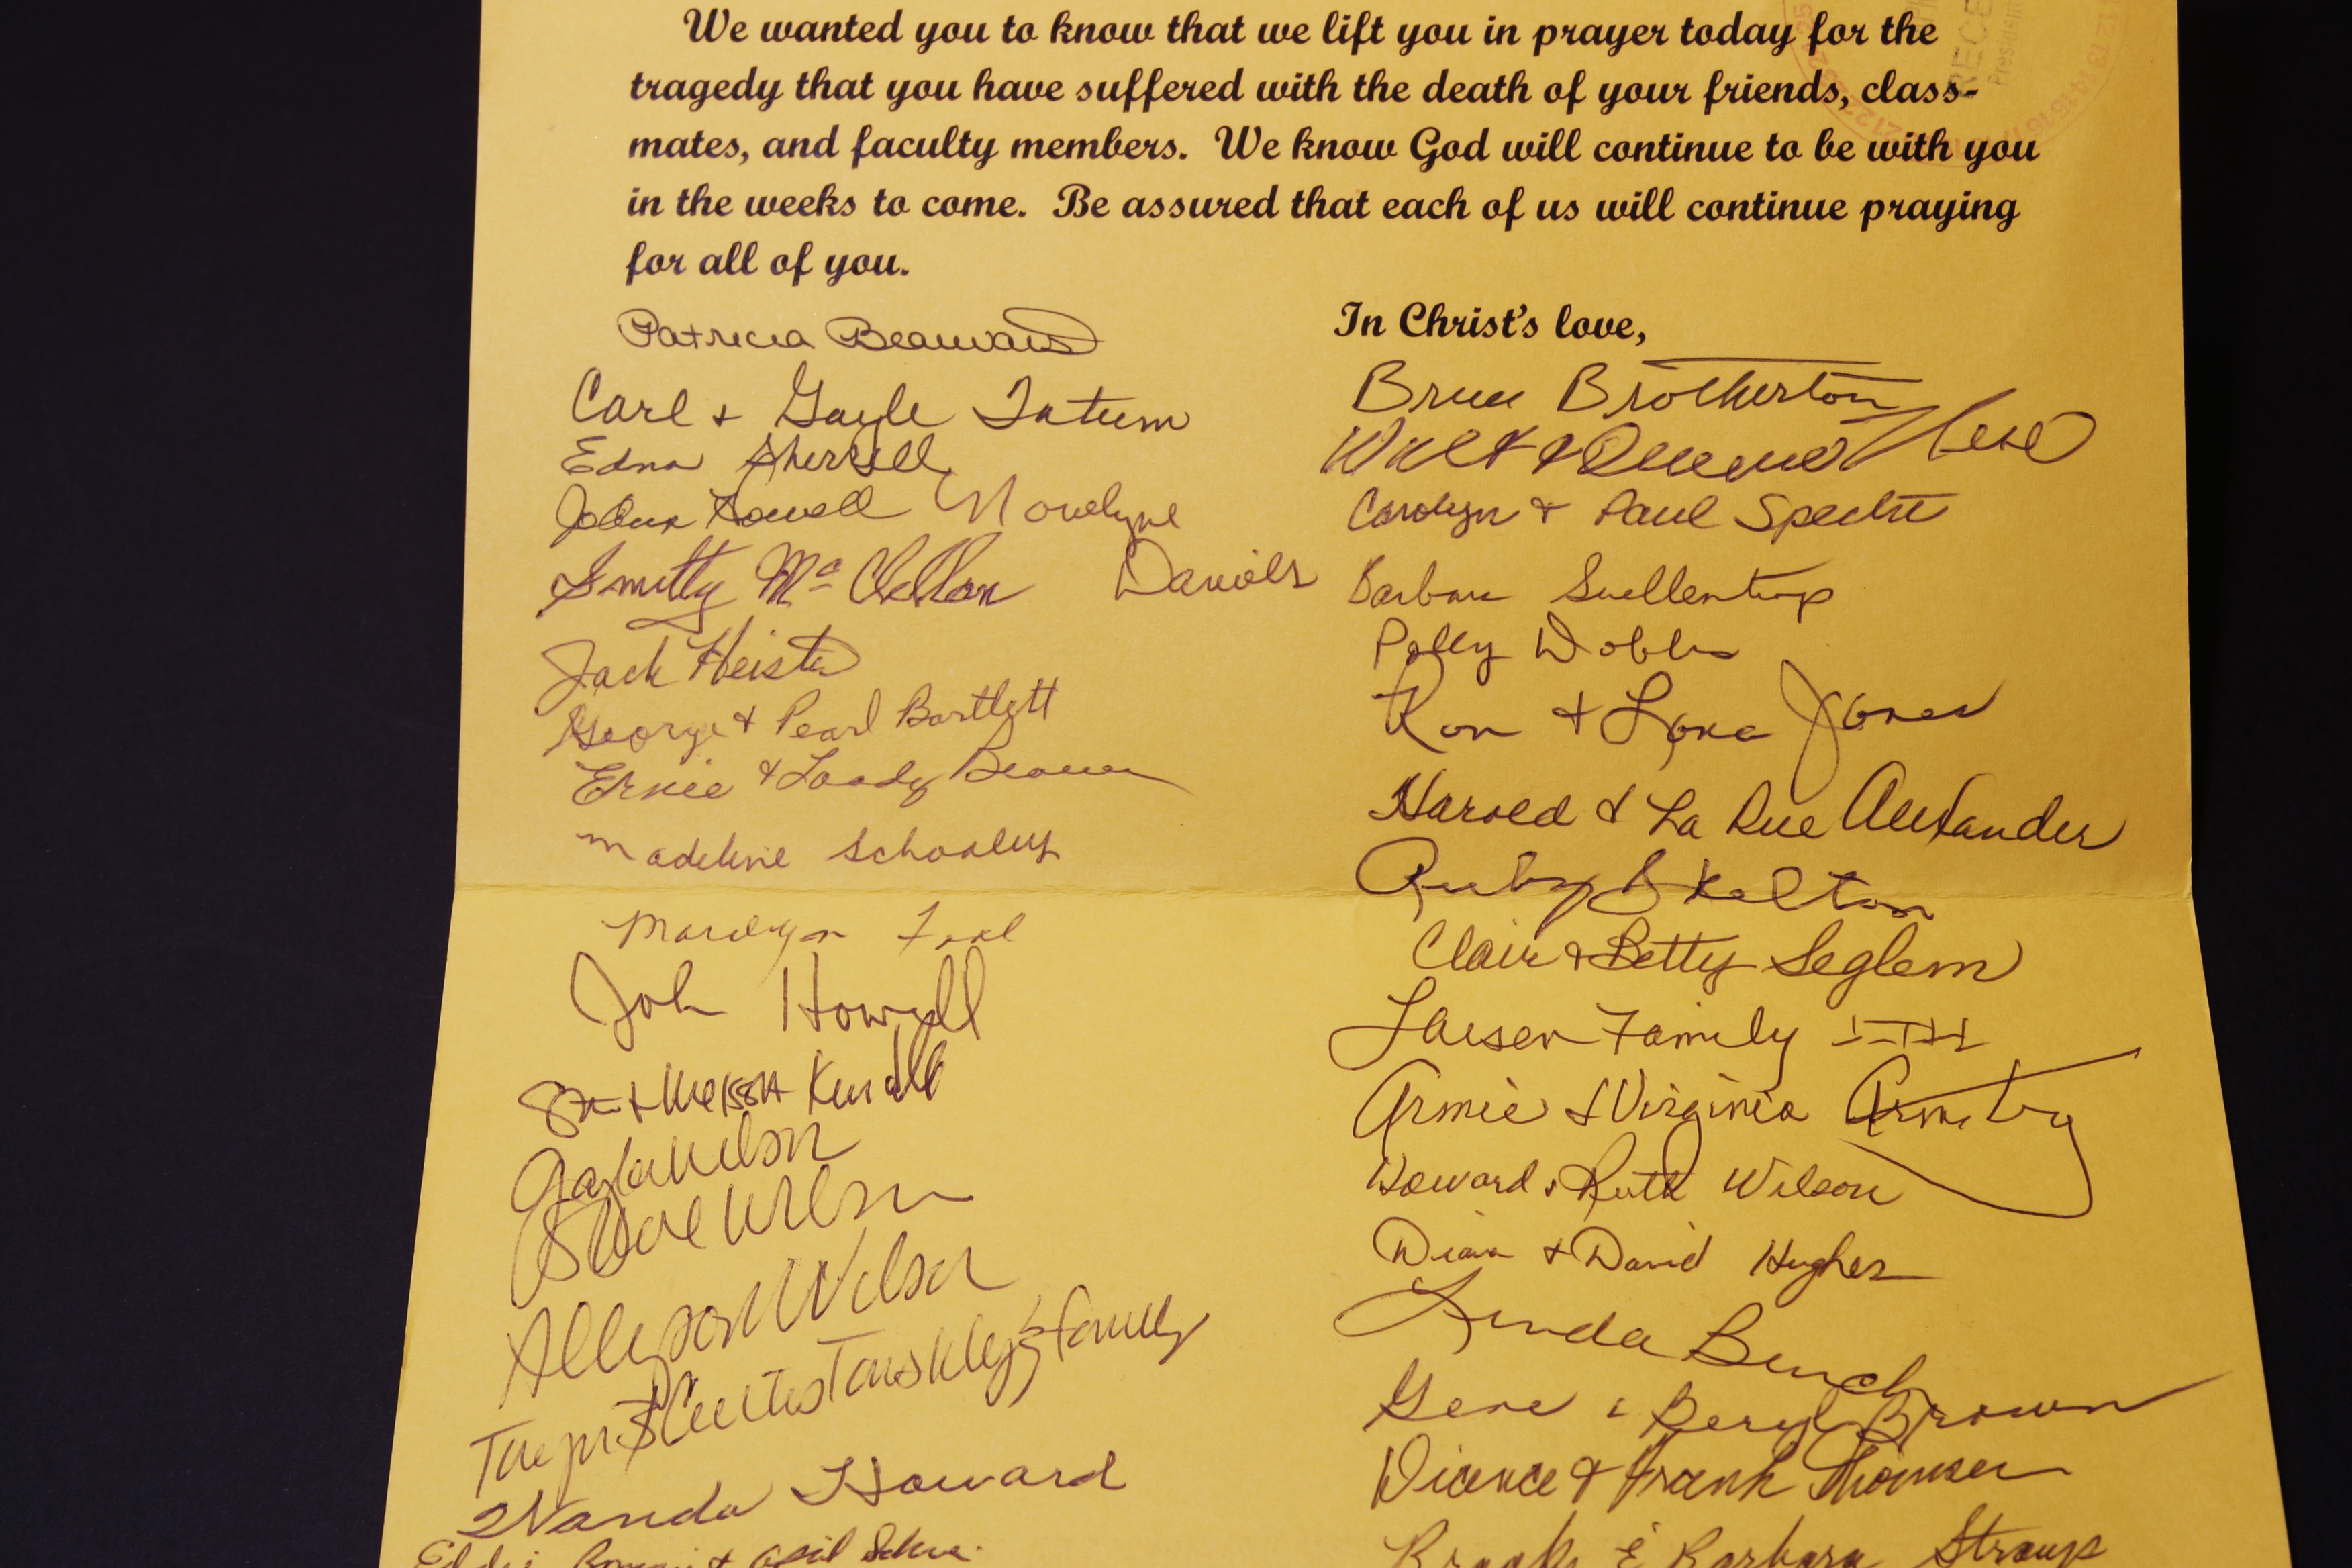 We wanted you to know that we lift you in prayer today for the
tragedy that you have suffered with the death of your friends, class-
mates, and faculty members. We know God will continue to be with you
in the weeks to come. Be assured that each of us will continue praying
for all of you.
In Christ's love,
Patricia Beauvais
Carl + Gayle Tatum
Edna Sherrell
Howell
Daniels
Smitty Mc Clellan
Jack
George + Pearl Bartlett
Ernie &
Madeline Schooley
Marilyn
John Howell
Wilson
Steve Wilson
Allyson Wilson
& family
Wanda Howard
Brotherton
Walt &
Carolyn & Paul Specht
Barbara Suellentrop
Polly Dobbs
Ron + Jones
Harold & La Rue Alexander
Ruby Skelton
Clair & Betty Seglem
Family
Armie & Virginia
Howard & Ruth Wilson
& David Hughes
Linda Bench
Gene & Beryl Brown
& Frank
& Barbara Stroup
RECE